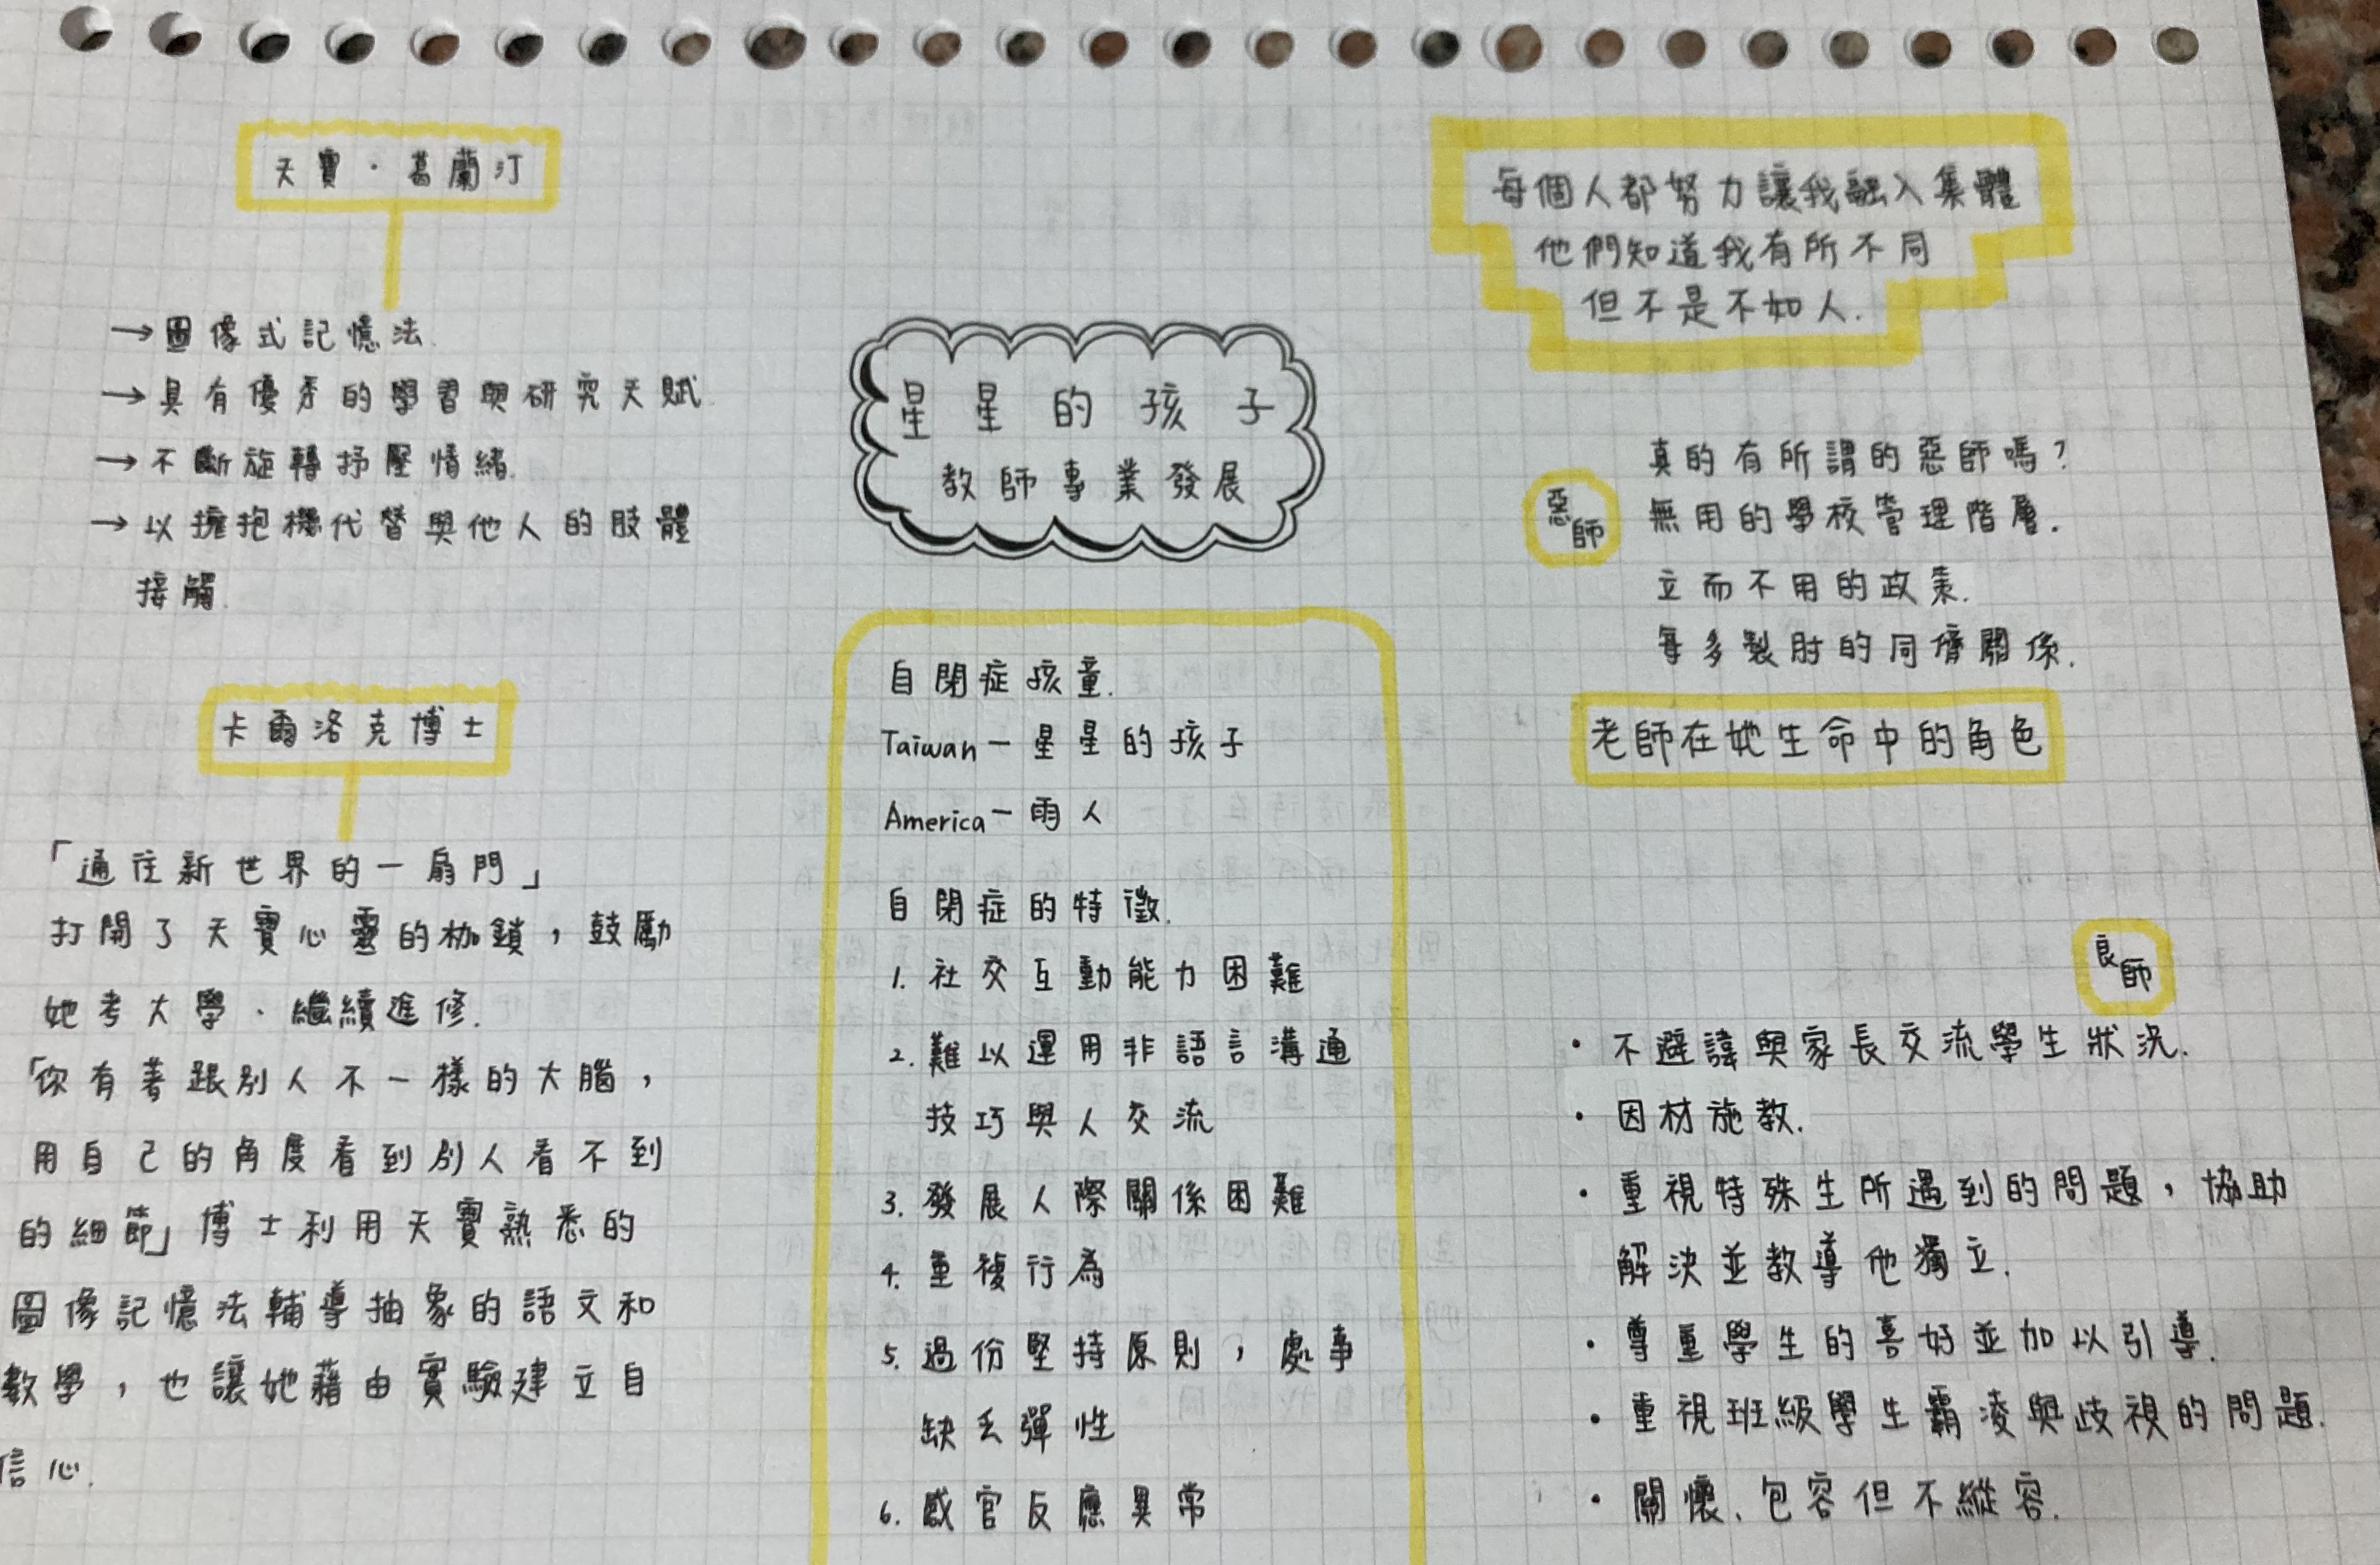 天寶·葛蘭汀
→圖像式記憶法.
→具有優秀的學習與研究天賦.
→不斷旋轉抒壓情緒.
→以擁抱機代替與他人的肢體
接觸.
卡爾洛克博士
「通往新世界的一扇門」
打開了天寶心靈的枷鎖，鼓勵
她考大學、繼續進修.
「你有著跟別人不一樣的大腦，
用自己的角度看到別人看不到
的細節」博士利用天寶熟悉的
圖像記憶法輔導抽象的語文和
數學，也讓她藉由實驗建立自
信心.
星星的孩子
教師專業發展
自閉症孩童.
Taiwan－星星的孩子
America－雨人
自閉症的特徵.
1. 社交互動能力困難
2. 難以運用非語言溝通
技巧與人交流
3. 發展人際關係困難
4. 重複行為
5. 過份堅持原則，處事
缺乏彈性
6. 感官反應異常
每個人都努力讓我融入集體
他們知道我有所不同
但不是不如人.
惡師
真的有所謂的惡師嗎？
無用的學校管理階層.
立而不用的政策.
每多製肘的同儕關係.
老師在她生命中的角色
良師
· 不避諱與家長交流學生狀況.
· 因材施教.
· 重視特殊生所遇到的問題，協助
解決並教導他獨立.
· 尊重學生的喜好並加以引導.
· 重視班級學生霸凌與歧視的問題.
· 關懷、包容但不縱容.